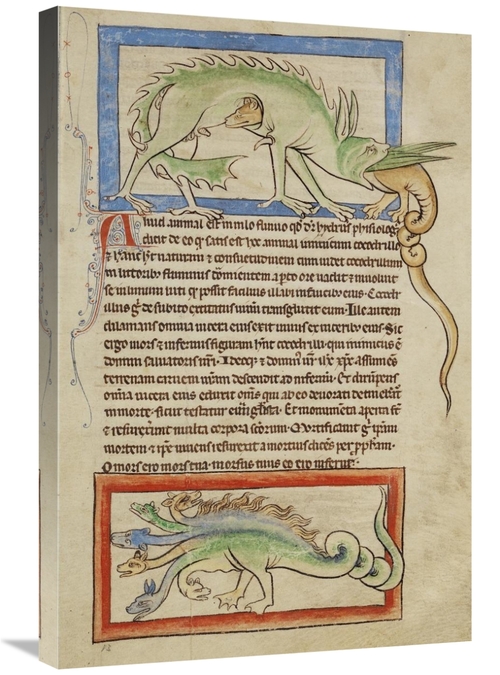 Aliud animal est in nilo fluuio qd dr hydrus physiolog
dicit de eo q satis est hoc animal inimicum cocodrillo
& hanc ht naturam et consuetudinem cum uidet cocodrillum
in litoribus fluminis dormientem apto ore uadit & inuoluit
se in limum luti quo possit facilius illabi in faucib eius. Cocodr
illus g de subito excitatus uiuum transglutit eum. Ille autem
dilanians omnia uiscera eius exit uiuus ex uiscerib eius. Sic
ergo mors et infernus figuram hnt cocodrilli. qui inimicus e
domini saluatoris nri. Ideoq et domin nr ihc xpc assumens
terrenam carnem nram descendit ad infernum. Et dirumpens
omnia uiscera eius eduxit omnes qui ab eo deuorati detinebant
in morte. sicut testatur euuglista. Et monumenta aperta st
& resurrexerunt multa corpora scorum. Mortificauit g ipam
mortem et ipse uiuens resurrexit a mortuis dicens per propham.
O mors ero mors tua. morsus tuus ero inferne.